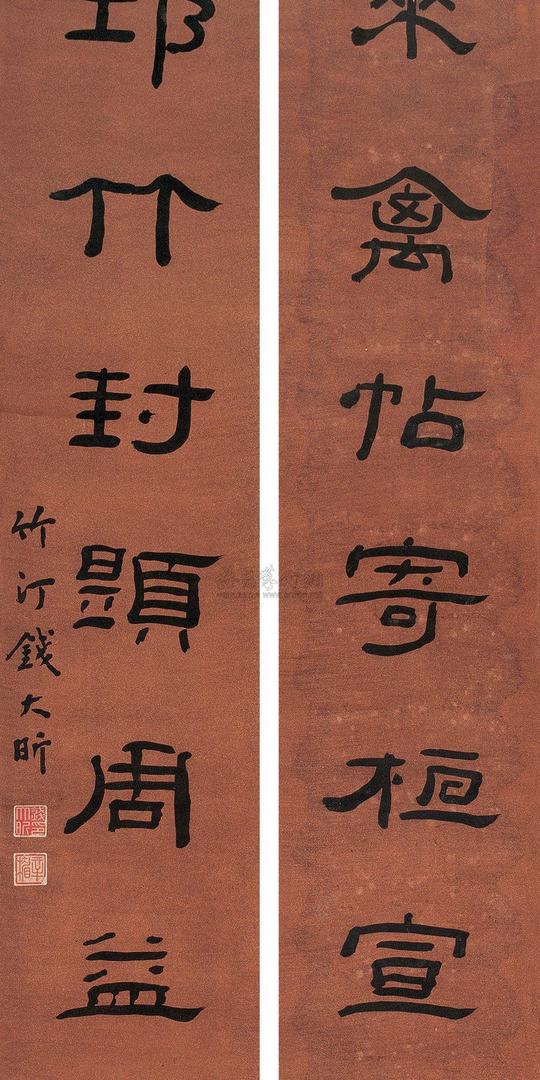 來禽帖寄桓宣
邛竹封題周益
竹汀錢大昕